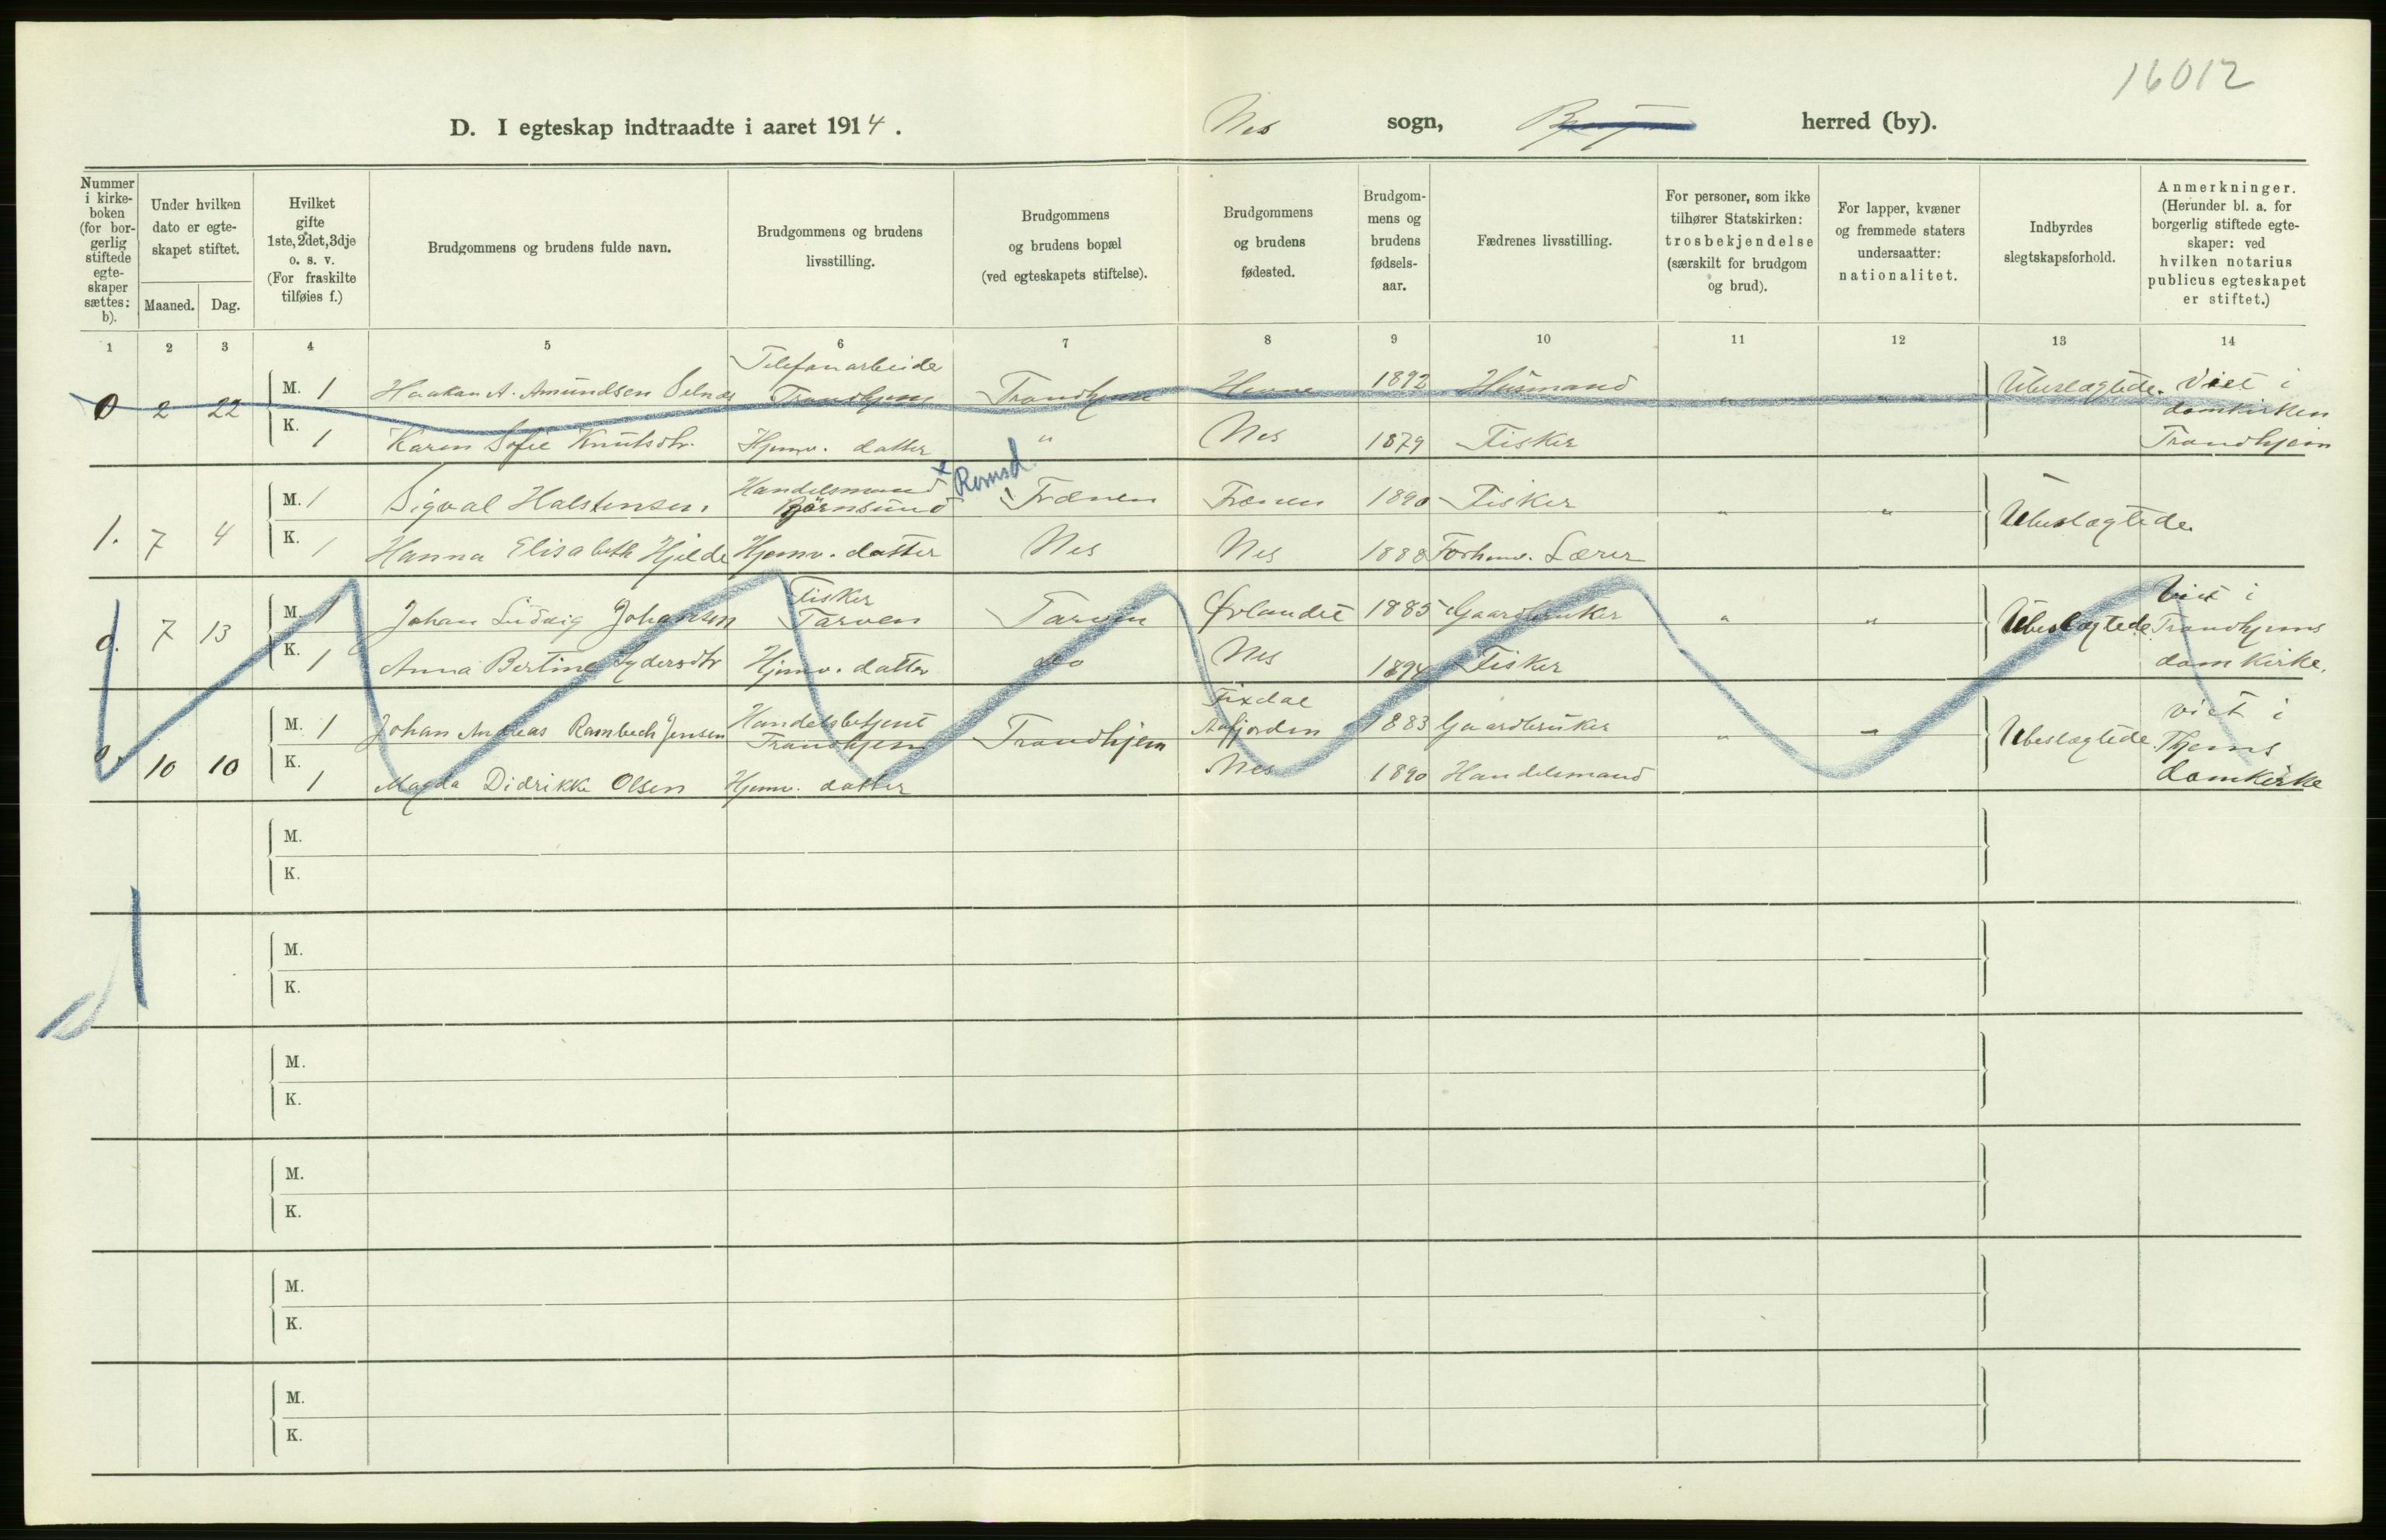 16012
D. I egteskap indtraadte i aaret 1914. Nes sogn, herred (by).
Nummer i kirkeboken (for borgerlig stiftede egteskaper sættes: b).
Under hvilken dato er egteskapet stiftet.
Maaned. Dag.
Hvilket gifte 1ste, 2det, 3dje o. s. v. (For fraskilte tilføies f.)
Brudgommens og brudens fulde navn.
Brudgommens og brudens livsstilling.
Brudgommens og brudens bopæl (ved egteskapets stiftelse).
Brudgommens og brudens fødested.
Brudgommens og brudens fødselsaar.
Fædrenes livsstilling.
For personer, som ikke tilhører Statskirken: trosbekjendelse (særskilt for brudgom og brud).
For lapper, kvæner og fremmede staters undersaatter: nationalitet.
Indbyrdes slegtskapsforhold.
Anmerkninger. (Herunder bl. a. for borgerlig stiftede egteskaper: ved hvilken notarius publicus egteskapet er stiftet.)
1 2 3 4 5 6 7 8 9 10 11 12 13 14
0 2 22 M. 1 Haakon A. Amundsen Selnæs Telefonarbeide Trondhjem Trondhjem Hevne 1892 Husmand " " Ubeslægtede. Viet i domkirken Trondhjem
K. 1 Karen Sofie Knutsdtr. Hjemv. datter " Nes 1879 Fisker
1. 7 4 M. 1 Sigval Halstensen. Handelsmand Bjørnsund x Romsd. Frænen Frænen 1890 Fisker " " Ubeslægtede.
K. 1 Hanna Elisabeth Hjelde Hjemv. datter Nes Nes 1888 Forhenv. Lærer
0. 7 13 M. 1 Johan Ludvig Johansen Fisker Tarven Tarven Ørlandet 1885 Gaardbruker " " Ubeslægtede. Viet i Trondhjems domkirke.
K. 1 Anna Bertine Hjemv. datter do Nes 1894 Fisker
0. 10 10 M. 1 Johan Andreas Rambech Jensen Handelsbetjent Trondhjem Trondhjem Fixdal Aafjorden 1883 Gaardbruker " " Ubeslægtede. Viet i Thjems domkirke
K. 1 Magda Didrikke Olsen Hjemv. datter Nes 1890 Handelsmand
M.
K.
M.
K.
M.
K.
M.
K.
M.
K.
M.
K.